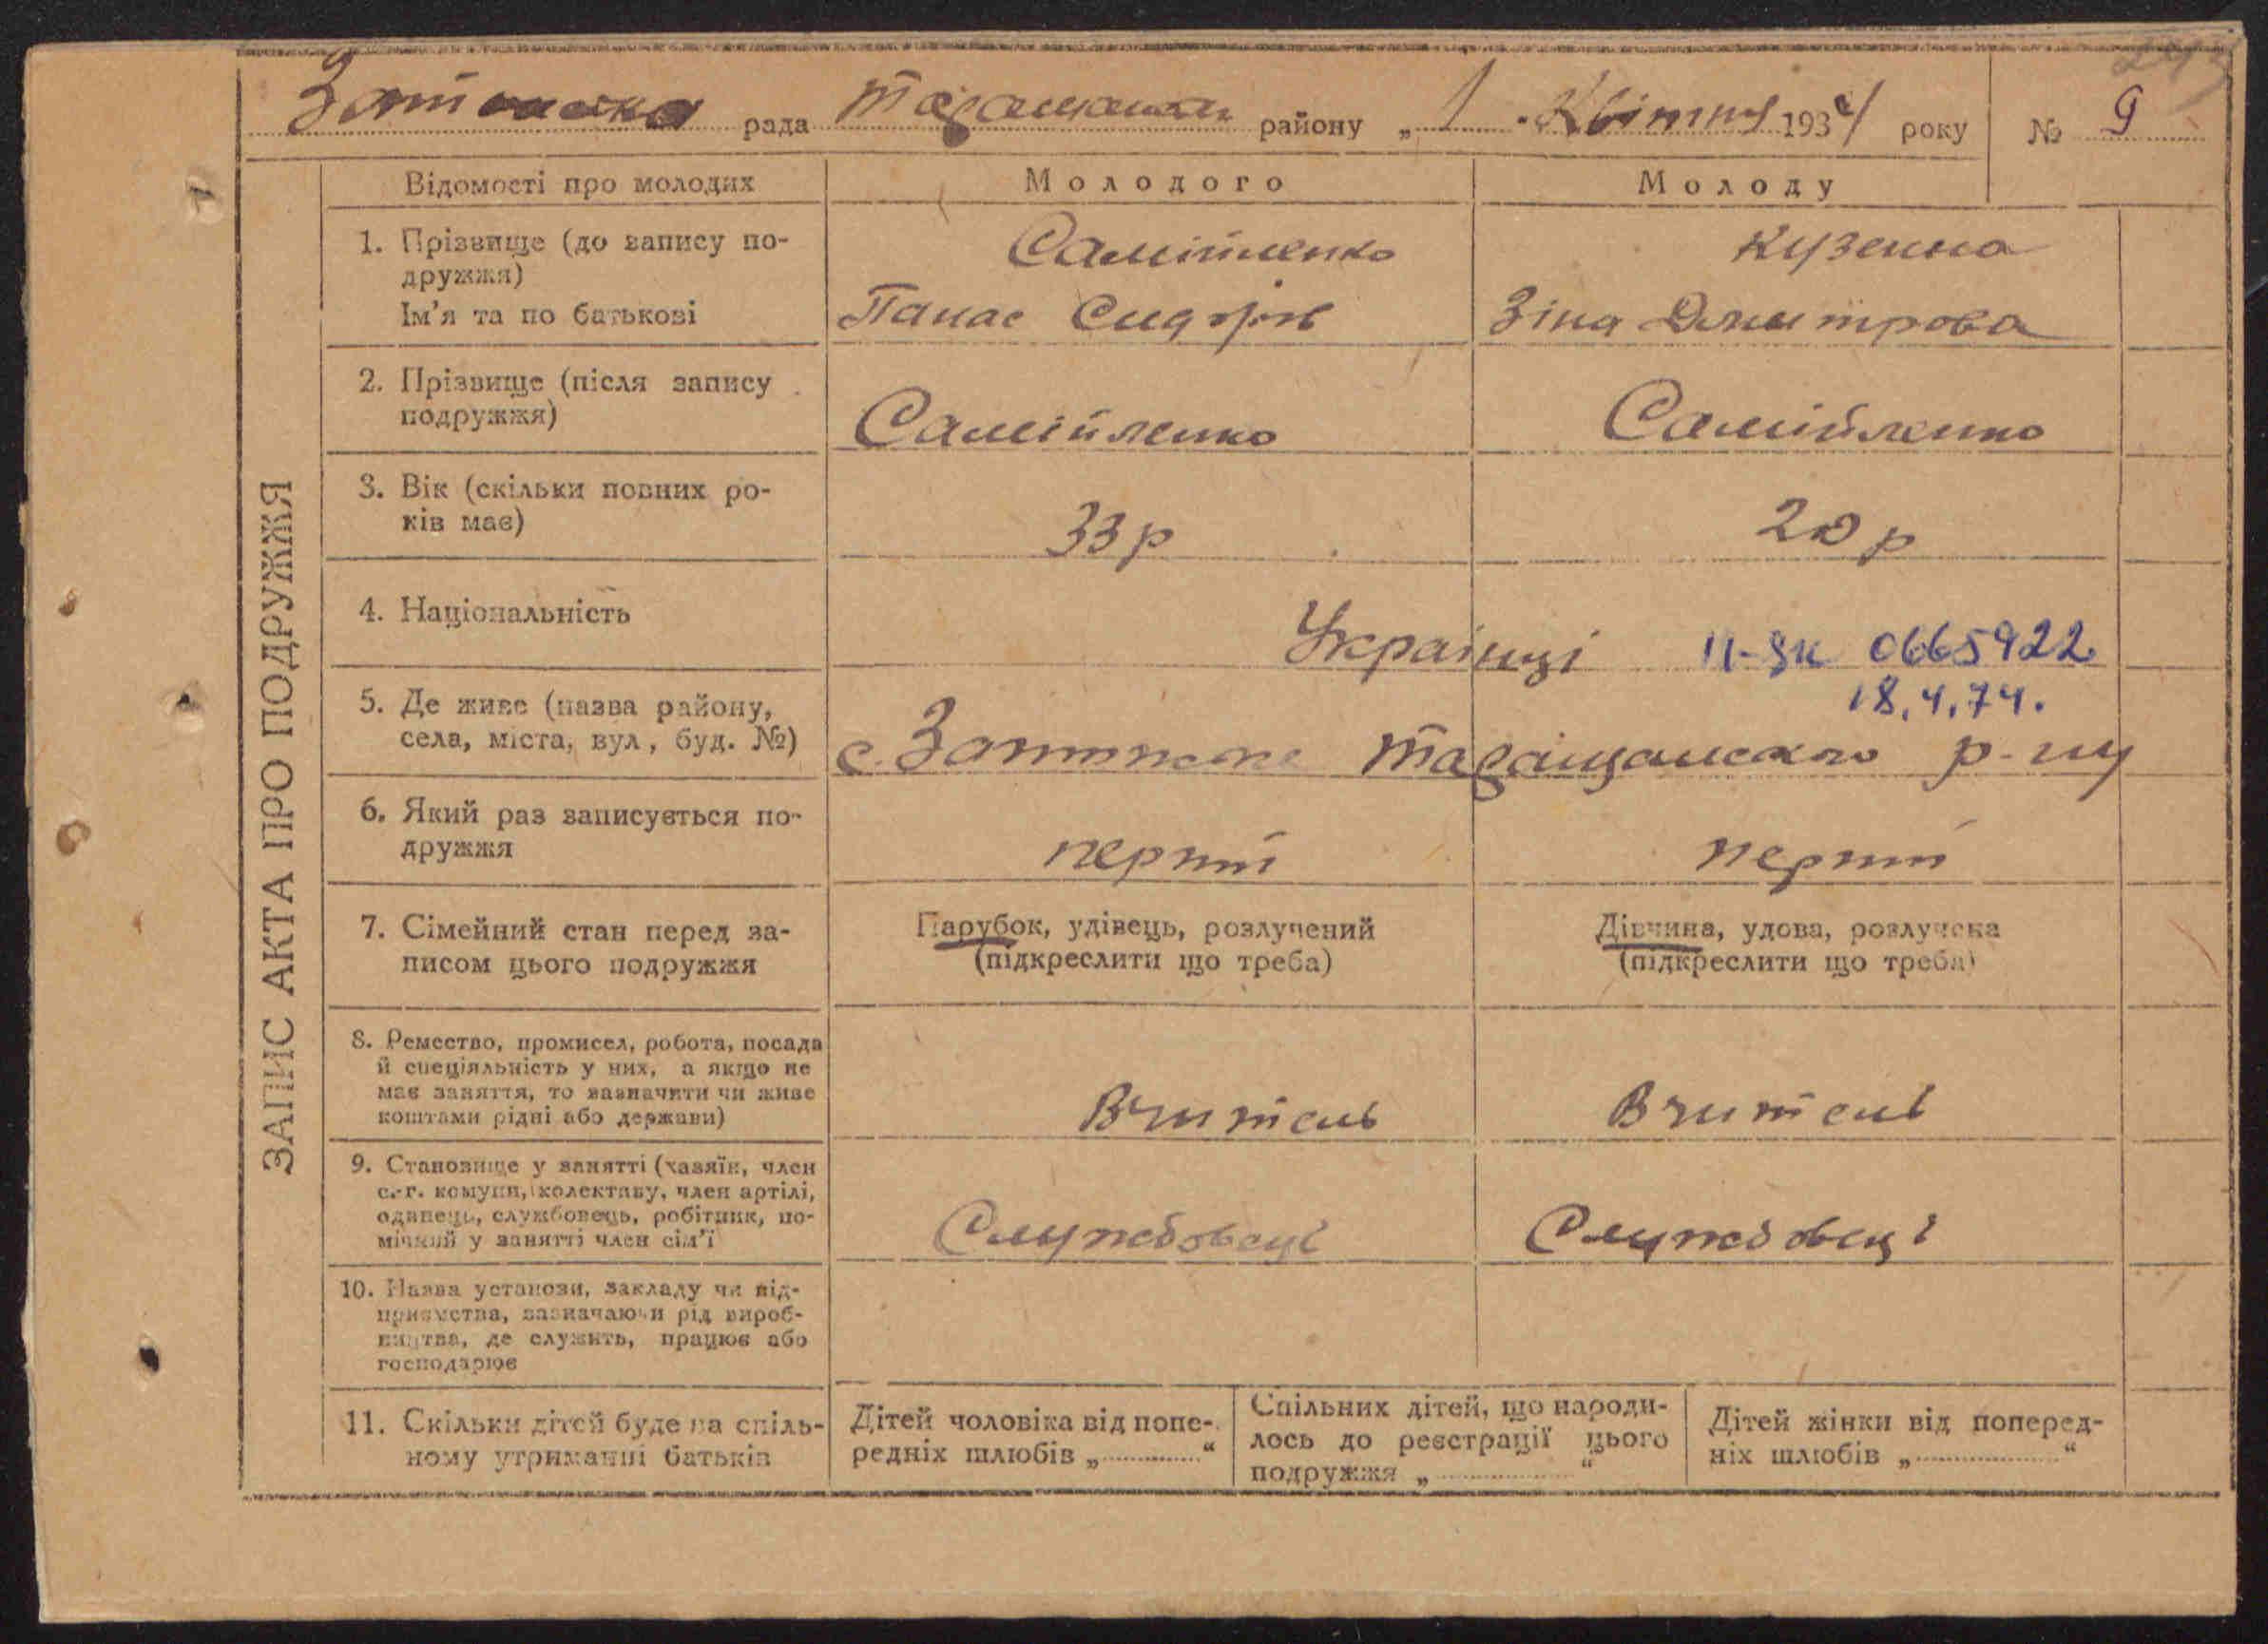 рада Таращанськ району „ 1 " Квітня 1934 року № 9
ЗАПИС АКТА ПРО ПОДРУЖЖЯ
Відомості про молодих Молодого Молоду
1. Прізвище (до запису по-
дружжя) Самійленко
Ім'я та по батькові Панас Сидорів Зіна Дмитрова
2. Прізвище (після запису
подружжя) Самійленко Самійленко
3. Вік (скільки повних ро-
ків має) 33 р 20 р
4. Національність Українці 0665922
18.4.74.
5. Де живе (назва району,
села, міста, вул, буд. №) с. Таращанского р-ну
6. Який раз записується по-
дружжя
7. Сімейний стан перед за-
писом цього подружжя
Парубок, удівець, розлучений
(підкреслити що треба)
Дівчина, удова, розлучена
(підкреслити що треба)
8. Ремество, промисел, робота, посада
й спеціяльність у них, а якщо не
має заняття, то зазначити чи живе
коштами рідні або держави)
Вчитель Вчитель
9. Становище у занятті (хазяїн, член
с.-г. комуни, колективу, член артілі,
одинець, службовець, робітник, по-
мічний у занятті член сім'ї
Службовці Службовці
10. Назва установи, закладу чи під-
приємства, зазначаючи рід вироб-
ництва, де служить, працює або
господарює
11. Скільки дітей буде на спіль-
ному утриманні батьків
Дітей чоловіка від попе-
редніх шлюбів „ “
Спільних дітей, що народи-
лось до реєстрації цього
подружжя „ “
Дітей жінки від поперед-
ніх шлюбів „ “